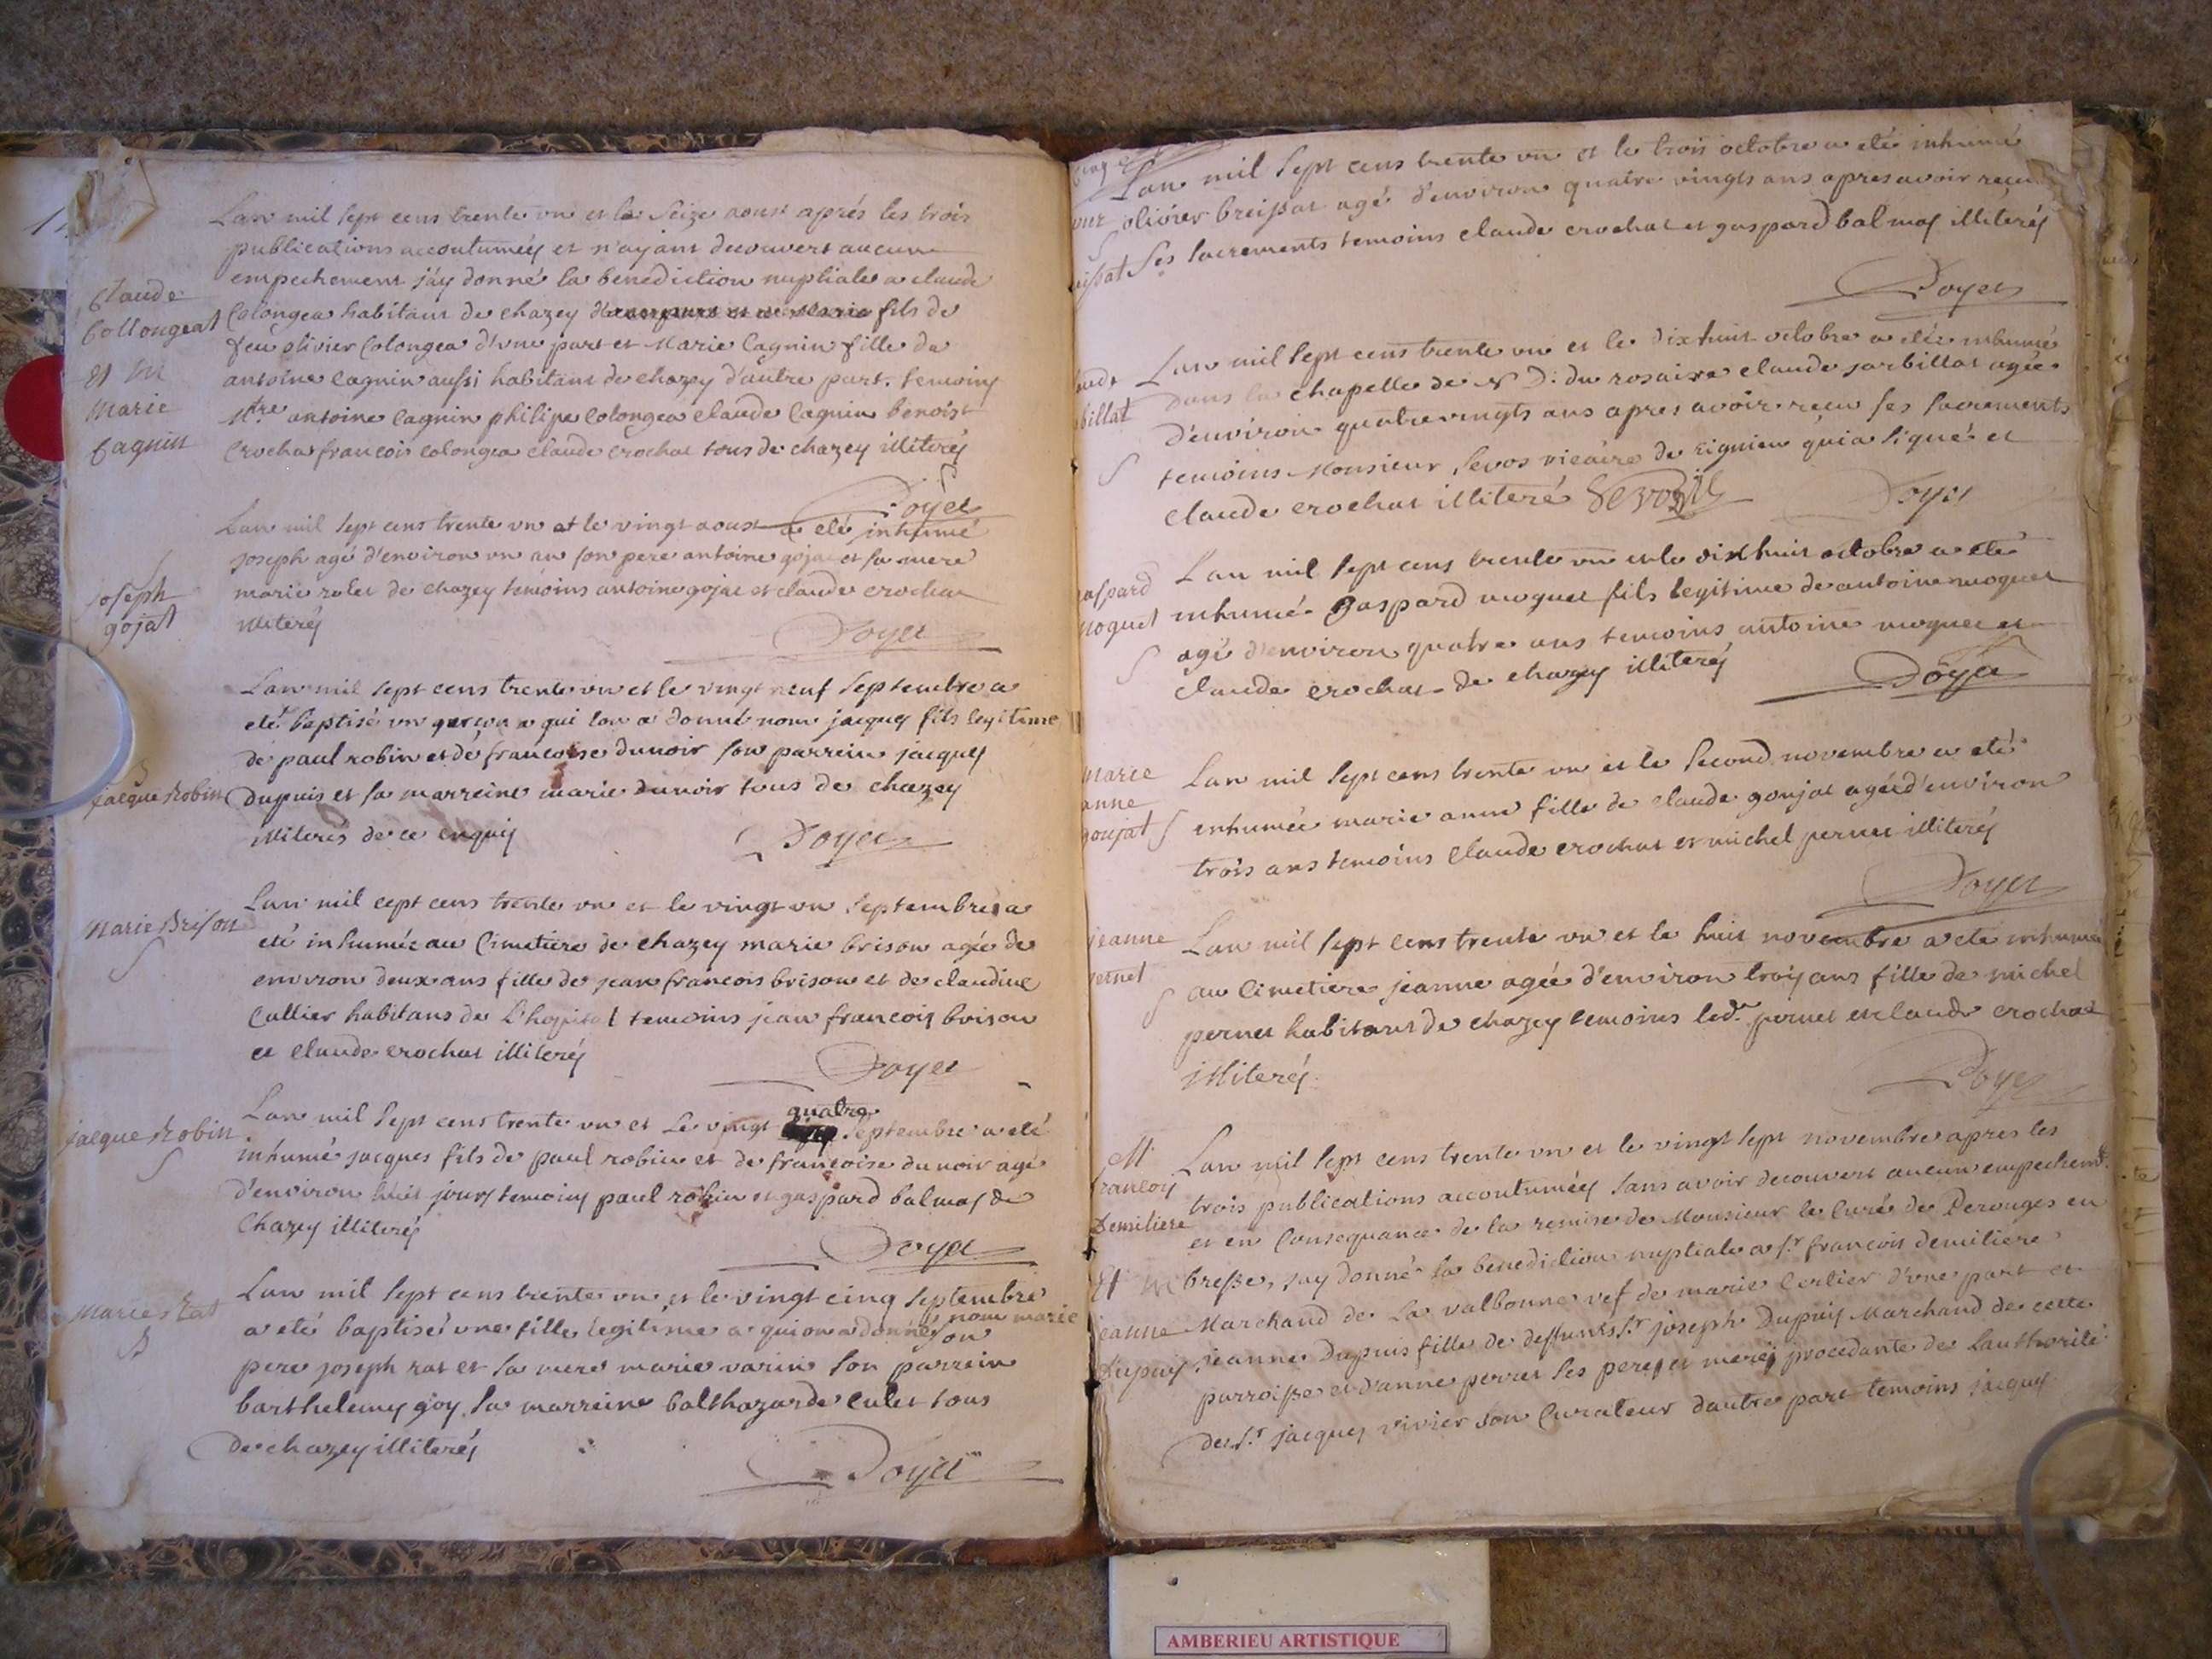 Lan mil sept cens trente vn et le seize aoust aprés les trois
publications accoutumées et n'ayant decouvert aucun
empechement j'ay donné la benediction nuptiale a claude
Claude
Collongeat
et
Marie
Cagnin
Colongea habitant de chazey fils de
feu olivier Colongea d'vne part et Marie Cagnin fille de
antoine Cagnin aussi habitant de chazey d'autre part. temoins
Mtre antoine Cagnin philipe Colongea claude Cagnin benoist
Crochat francois Colongea claude Crochat tous de chazey illiterés
Doyet
Lan mil sept cens trente vn et le vingt aoust a eté inhumé
joseph agé d'environ vn an son pere antoine gojat et sa mere
joseph
gojat
marie rolet de chazey temoins antoine gojat et claude crochat
illiterés
Doyet
Lan mil sept cens trente vn et le vingt neuf septembre a
eté baptisé vn garçon a qui lon a donné nom jacques fils legitime
de paul robin et de francoise dunoir son parrein jacques
jacque Robin
B
dupuis et sa marreine marie dunoir tous de chazey
illiterés de ce enquis
Doyet
Marie Brison
S
Lan mil cept cens trente vn et le vingt vn septembre a
eté inhumée au Cimetiere de chazey marie brison agée de
environ deux ans fille de jean francois brison et de claudine
Cullier habitans de L'hopital temoins jean francois brison
et claude crochat illiterés
Doyet
jacque Robin
S
Lan mil sept cens trente vn et Le vingt quatre septembre a eté
inhumé jacques fils de paul robin et de francoise dunoir agé
d'environ huit jours temoins paul robin et gaspard balmas de
Chazey illiterés
Doyet
Marie Rat
B
Lan mil sept cens trente vn et le vingt cinq septembre
a eté baptisé vne fille legitime a qui on a donné nom marie son
pere joseph rat et sa mere marie varin son parrein
barthelemy goy sa marreine balthazarde Culet tous
de chazey illiterés
Doyet
Lan mil sept cens trente vn et le trois octobre a eté inhumé
olivier breissat agé d'environ quatre vingts ans apres avoir reçu
ses sacrements temoins claude crochat et gaspard balmas illiterés
Doyet
Lan mil sept cens trente vn et le dixhuit octobre a eté inhumé
billat
S
dans la chapelle de N D. du rosaire claude jarbillat agée
d'environ quatre vingts ans apres avoir reçu ses sacrements
temoins Monsieur Sevos vicaire de rignieu qui a signé et
claude crochat illiteré Doyet
aspard
moquet
S
Lan mil sept cens trente vn et le dixhuit octobre a eté
inhumé gaspard moquet fils legitime de antoine moquet
agé d'environ quatre ans temoins antoine moquet et
claude crochat de chazey illiterés
Doyet
Marie
anne
goujat S
Lan mil sept cens trente vn et le second novembre a eté
enhumée marie anne fille de claude goujat agée d'environ
trois ans temoins claude crochat et michel pernet illiterés
Doyet
jeanne
pernet
S
Lan mil sept cens trente vn et le huit novembre a eté inhumée
au Cimetiere jeanne agée d'environ trois ans fille de michel
pernet habitant de chazey temoins led. pernet et claude crochat
illiterés.
Doyet
M
francois
Demiliere
et
jeanne
Dupuis
Lan mil sept cens trente vn et le vingt sept novembre apres les
trois publications accoutumées sans avoir decouvert aucun empechemt.
et en Consequance de la remise de Monsieur le Curé de Perouges en
bresse, jay donné la benediction nuptiale a sr. francois demiliere
Marchand de la valbonne vef de marie Cerlier d'vne part et
jeanne Dupuis fille de deffunts sr joseph Dupuis Marchand de cette
parroisse et d'anne perret ses pere et mere procedante de Lauthorité
de sr. jacques vivier son Curateur dautre part temoins jacques
AMBERIEU ARTISTIQUE